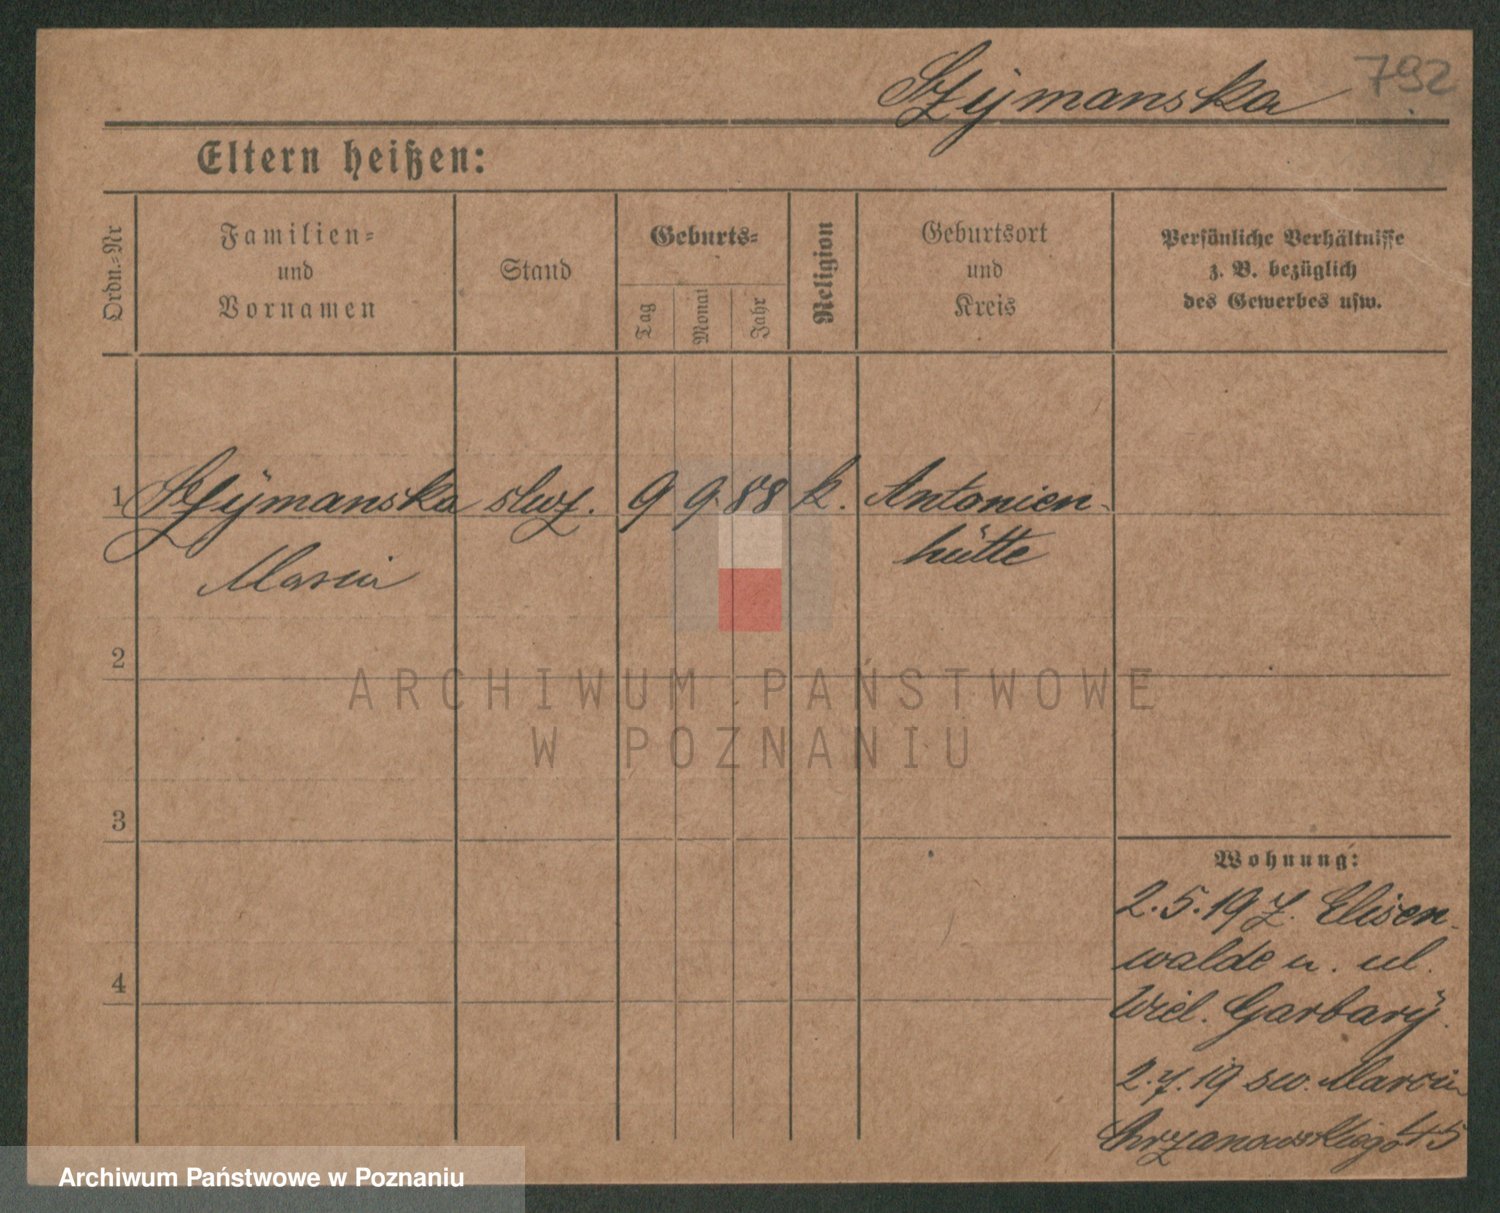 Szÿmanska
792
Eltern heißen:
Ordn.-Nr
Familien-
und
Vornamen
Stand
Geburts-
Tag
Monat
Jahr
Religion
Geburtsort
und
Kreis
Persönliche Verhältnisse
z. B. bezüglich
des Gewerbes usw.
1 Szÿmanska służ. 9 9 88 k. Antonien-
hütte
2
ARCHIWUM PAŃSTWOWE
W POZNANIU
3
Wohnung:
2.5.19 z. Elisen-
walde n. ul.
Wiel. Garbarÿ.
4
2.7.19 sw. Marcin
Chrzanowskiego 45
Archiwum Państwowe w Poznaniu